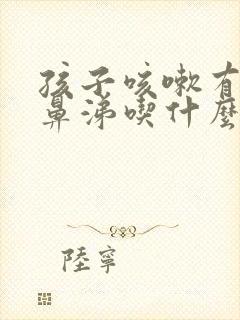 孩子咳嗽有
鼻涕喫什麼
陸寧